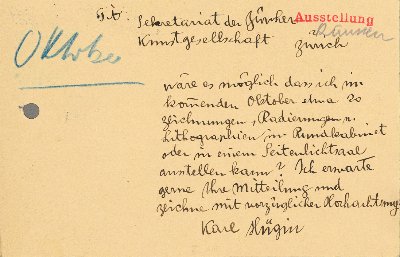 Tit. Sekretariat der Zürcher
Ausstellung
Kunstgesellschaft Zürich
Oktober
wäre es möglich dass ich im
kommenden Oktober etwa 20
Zeichnungen, Radierungen u.
Lithographien im Rundkabinet
oder in einem Seitenlichtsaal
ausstellen kann? Ich erwarte
gerne Ihre Mitteilung und
zeichne mit vorzüglicher Hochachtung
Karl Hügin